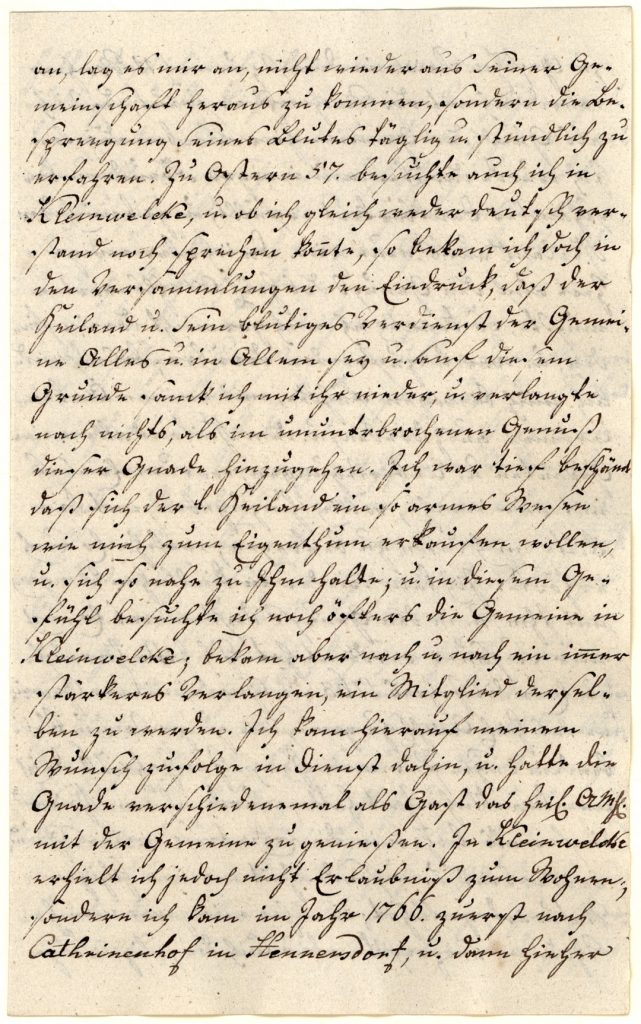 an, lag es mir an, nicht wieder aus seiner Ge-
meinschaft heraus zu kommen, sondern die Be-
sprengung seines Blutes täglig u. stündlich zu
erfahren. Zu Ostern 57. besuchte auch ich in
Kleinwelcke, u. ob ich gleich weder deutsch ver-
stand noch sprechen kon̄te, so bekam ich doch in
den Versammlungen den Eindruck, daß der
Heiland u. sein blutiges Verdienst der Gemei-
ne Alles u. in Allem sey u. auf diesem
Grunde sanck ich mit ihr nieder, u. verlangte
nach nichts, als im ununterbrochenen Genuß
dieser Gnade hinzugehen. Ich war tief beschämt
daß sich der l. Heiland ein so armes Wesen
wie mich zum Eigenthum erkaufen wollen,
u. sich so nahe zu Ihm halte; u. in diesem Ge-
fühl besuchte ich noch öfters die Gemeine in
Kleinwelcke; bekam aber nach u. nach ein im̄er
stärkeres Verlangen, ein Mitglied dersel-
ben zu werden. Ich kam hierauf meinem
Wunsch zufolge in Dienst dahin, u. hatte die
Gnade verschiedenemal als Gast das heil.
mit der Gemeine zu genießen. In Kleinwelcke
erhielt ich jedoch nicht Erlaubniß zum Wohnen,
sondern ich kam im Jahr 1766. zuerst nach
Cathrinenhof in Hennersdorf, u. dann hieher